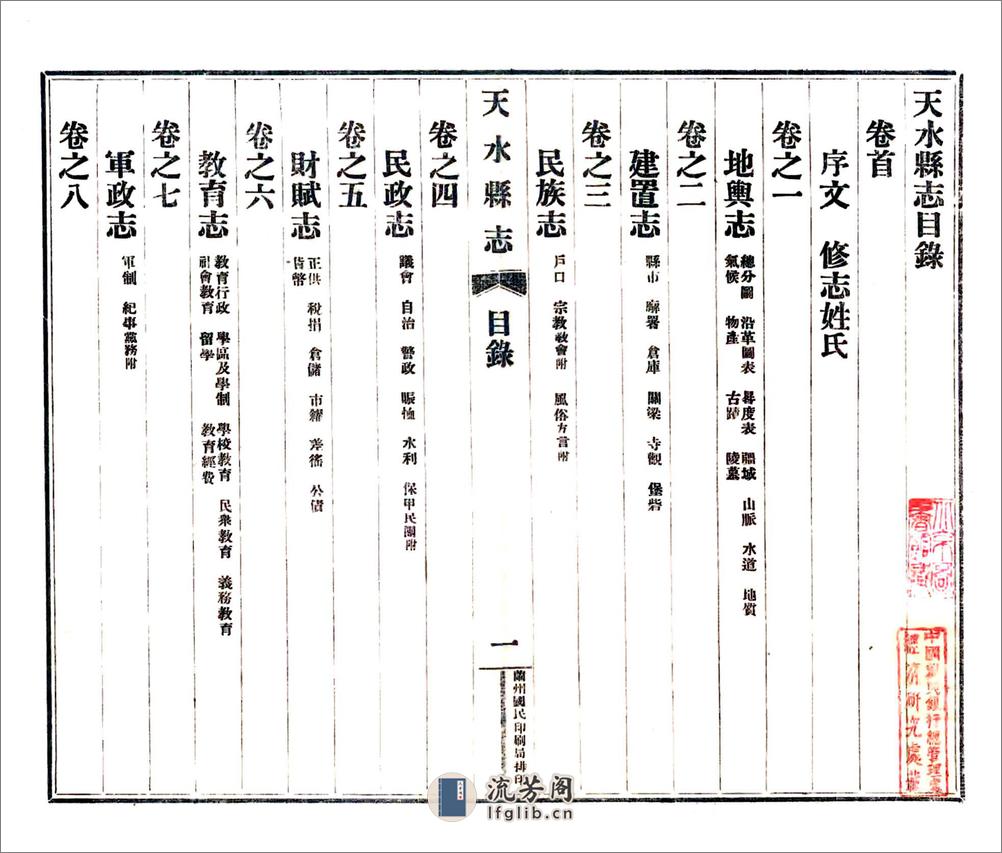 天水縣志目錄
卷首
序文 修志姓氏
卷之一
地輿志 總分圖 沿革圖表 晷度表 疆域 山脈 水道 地質
氣候 物產 古蹟 陵墓
卷之二
建置志 縣市 廨署 倉庫 關梁 寺觀 堡砦
卷之三
民族志 戶口 宗教教會附 風俗方言附
天水縣志 目錄 一
蘭州國民印刷局排印
卷之四
民政志 議會 自治 警政 賑恤 水利 保甲民團附
卷之五
財賦志 正供 稅捐 倉儲 市糴 差徭 公債
貨幣
卷之六
教育志 教育行政 學區及學制 學校教育 民衆教育 義務教育
社會教育 留學 教育經費
卷之七
軍政志 軍制 紀事黨務附
卷之八
流芳阁
lfglib.cn